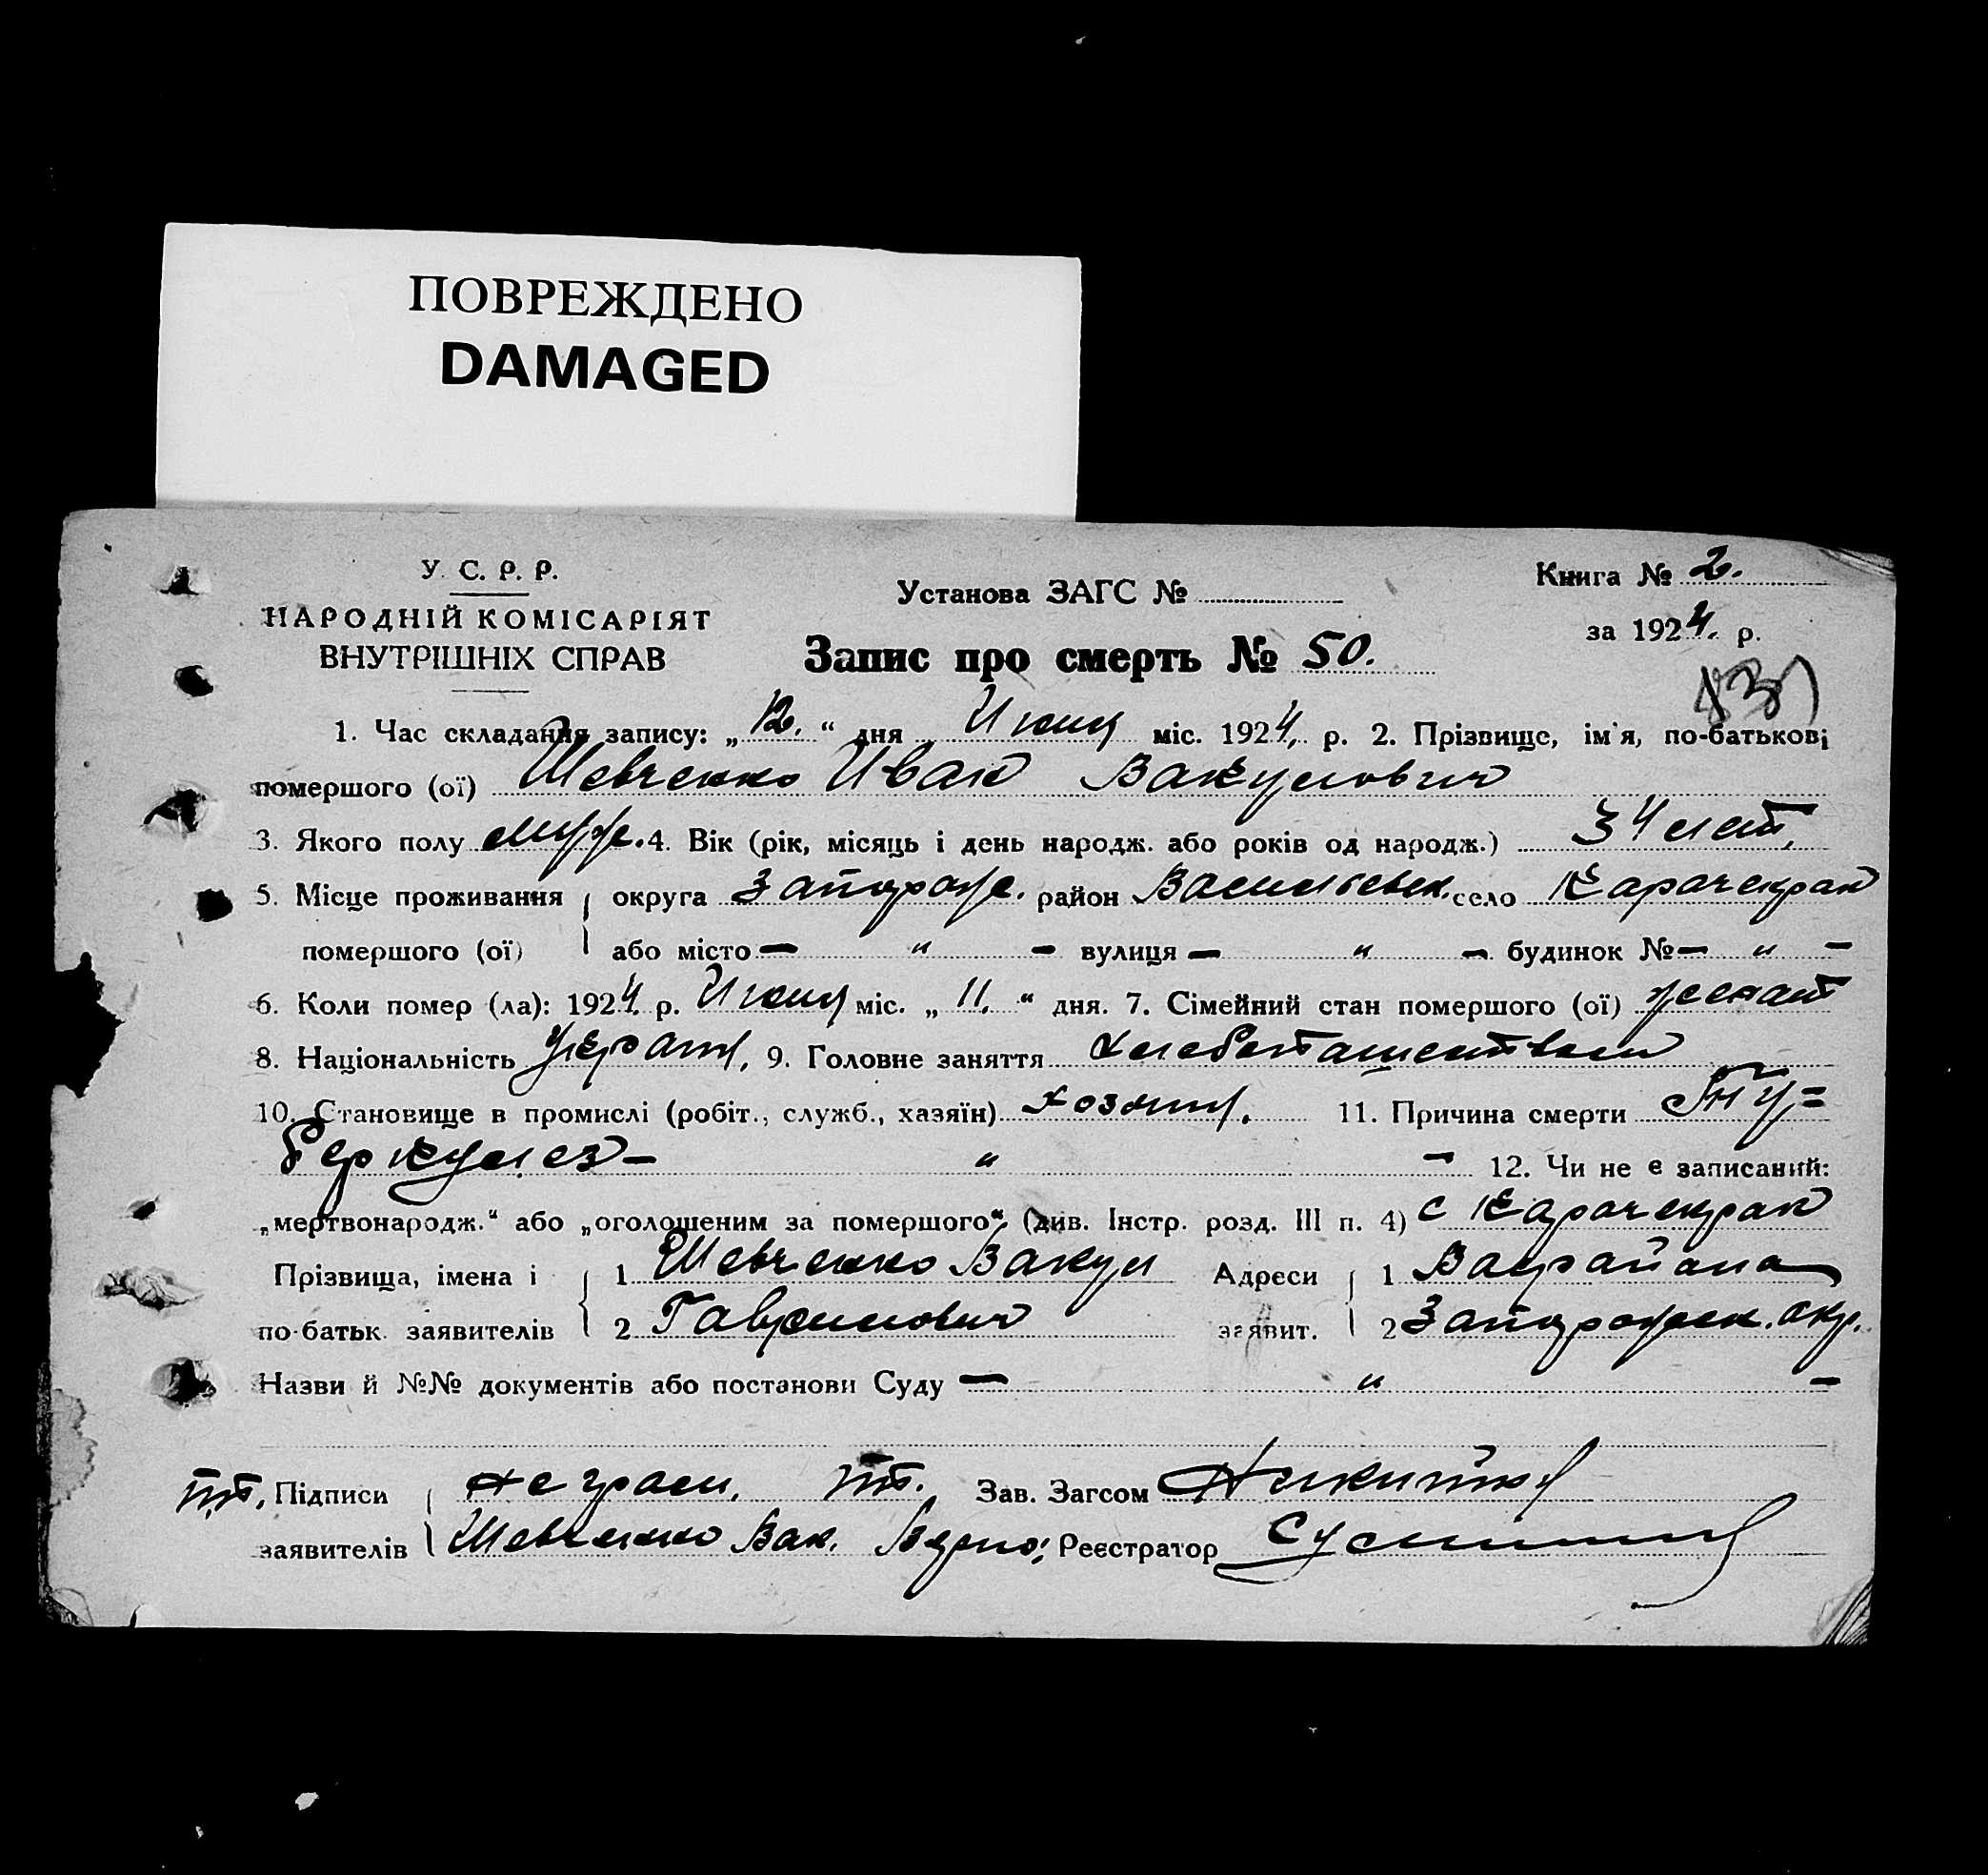 ПОВРЕЖДЕНО
DAMAGED
У. С. Р. Р.
НАРОДНІЙ КОМІСАРІЯТ
ВНУТРІШНІХ СПРАВ
Установа ЗАГС №
Запис про смерть № 50.
Книга № 2.
за 1924. р.
1. Час складання запису: „12.“ дня Июня міс. 1924. р. 2. Прізвище, ім'я, по-батькові
помершого (ої) Шевченко Иван Вакулович
3. Якого полу муж. 4. Вік (рік, місяць і день народж. або років од народж.) 34 лет.
5. Місце проживання округа Запорож. район Васильевск. село Карачекрак
помершого (ої) або місто — " — вулиця — " — будинок № — " —
6. Коли помер (ла): 1924. р. Июня міс. „11.“ дня. 7. Сімейний стан помершого (ої) женат
8. Національність Украин. 9. Головне заняття хлебопашеством
10. Становище в промислі (робіт., служб., хазяїн) хозяин. 11. Причина смерти Ту=
беркулез — " — 12. Чи не є записаний:
„мертвонародж.“ або „оголошеним за помершого“, (див. Інстр. розд. III п. 4) с Карачекрак
Прізвища, імена і 1 Шевченко Вакул Адреси 1 Вас района
по-батьк. заявителів 2 Гаврилович заявит. 2 Запорожск. окр.
Назви й №№ документів або постанови Суду — " —
Підписи неграм. Зав. Загсом
заявителів Шевченко Вак. Верно: Реєстратор